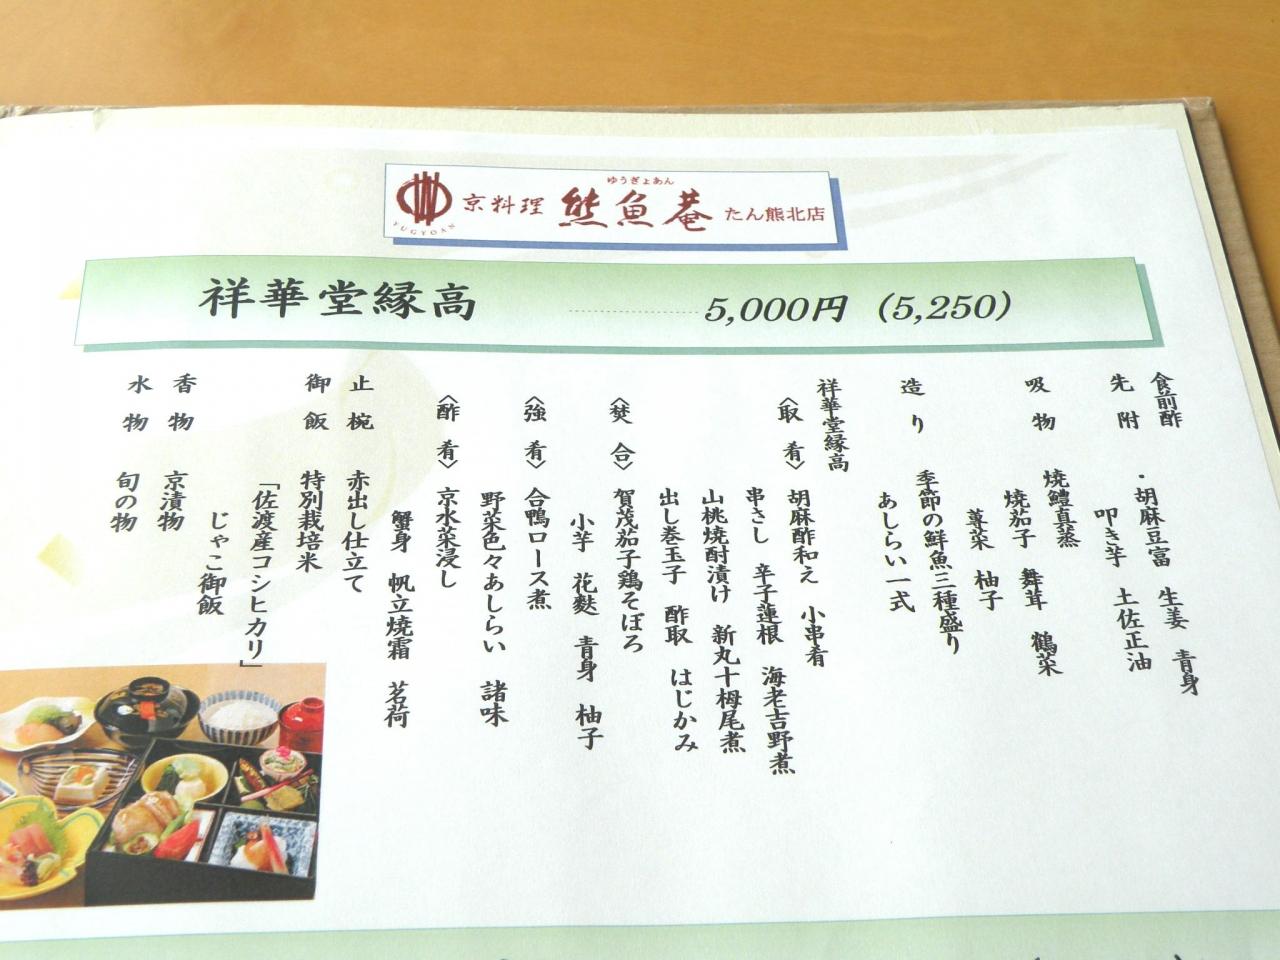 ゆうぎょあん
京料理 熊魚菴 たん熊北店
YUGYOAN
祥華堂縁高 5,000円 (5,250)
食前酢
先附 ・胡麻豆富 生姜 青身
叩き芋 土佐正油
吸物 焼鱧真蒸
焼茄子 舞茸 鶴菜
蓴菜 柚子
造り 季節の鮮魚三種盛り
あしらい一式
祥華堂縁高
〈取肴〉 胡麻酢和え 小串肴
串さし 辛子蓮根 海老吉野煮
山桃焼酎漬け 新丸十栂尾煮
出し巻玉子 酢取 はじかみ
〈焚合〉 賀茂茄子鶏そぼろ
小芋 花麩 青身 柚子
〈強肴〉 合鴨ロース煮
野菜色々あしらい 諸味
〈酢肴〉 京水菜浸し
蟹身 帆立焼霜 茗荷
止椀 赤出し仕立て
御飯 特別栽培米
「佐渡産コシヒカリ」
じゃこ御飯
香物 京漬物
水物 旬の物